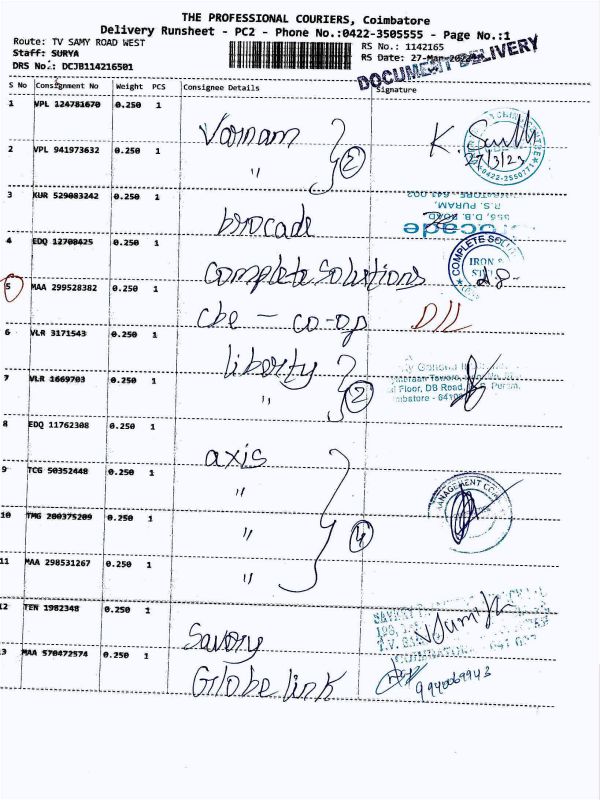 THE PROFESSIONAL COURIERS, Coimbatore
Delivery Runsheet - PC2 - Phone No.:0422-3505555 - Page No.:1
Route: TV SAMY ROAD WEST
RS No.: 1142165
Staff: SURYA
RS Date: 27-Mar-2023
DRS No.: DCJB114216501
DOCUMENT DELIVERY
S No Consignment No Weight PCS Consignee Details Signature
1 VPL 124781670 0.250 1 Varnam K.
27/3/23
2 VPL 941973632 0.250 1 " 2
*0422-2550771*
3 KUR 529083242 0.250 1 brocade
R.S. PURAM,
556, D.B. ROAD,
4 EDQ 12708425 0.250 1 Complete Solutions
COMPLETE SOLU
IRON &
5 MAA 299528382 0.250 1 cbe - co-op DLL
6 VLR 3171543 0.250 1 liberty
7 VLR 1669703 0.250 1 " 2
Floor, DB Road, R.S. Puram,
8 EDQ 11762308 0.250 1 axis
9 TCG 50352448 0.250 1 "
MANAGEMENT
10 TMG 200375209 0.250 1 " 4
11 MAA 298531267 0.250 1 "
12 TEN 1982348 0.250 1 Savory
COIMBATORE
13 MAA 570472574 0.250 1 Globe link
9940069943